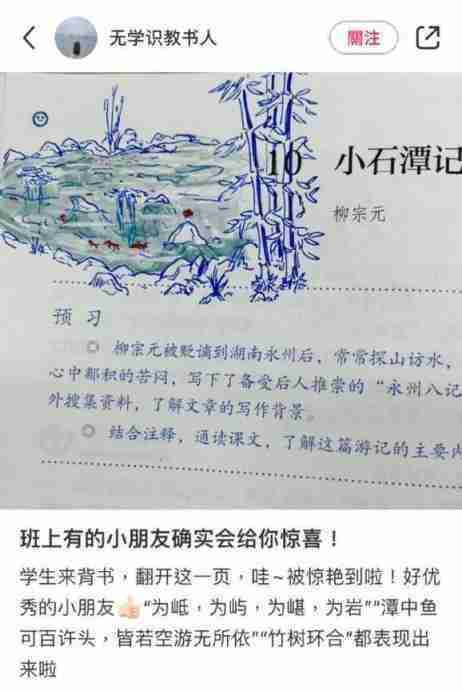 无学识教书人
關注
10 小石潭记
柳宗元
预 习
◎ 柳宗元被贬谪到湖南永州后，常常探山访水，
心中郁积的苦闷，写下了备受后人推崇的“永州八记
外搜集资料，了解文章的写作背景。
◎ 结合注释，通读课文，了解这篇游记的主要内
班上有的小朋友确实会给你惊喜！
学生来背书，翻开这一页，哇~被惊艳到啦！好优
秀的小朋友👍🏻“为坻，为屿，为嵁，为岩”“潭中鱼
可百许头，皆若空游无所依”“竹树环合”都表现出
来啦